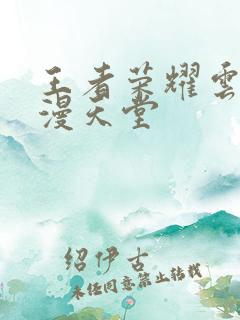 王者荣耀雲
漫天堂
绍伊古
未经同意禁止转载